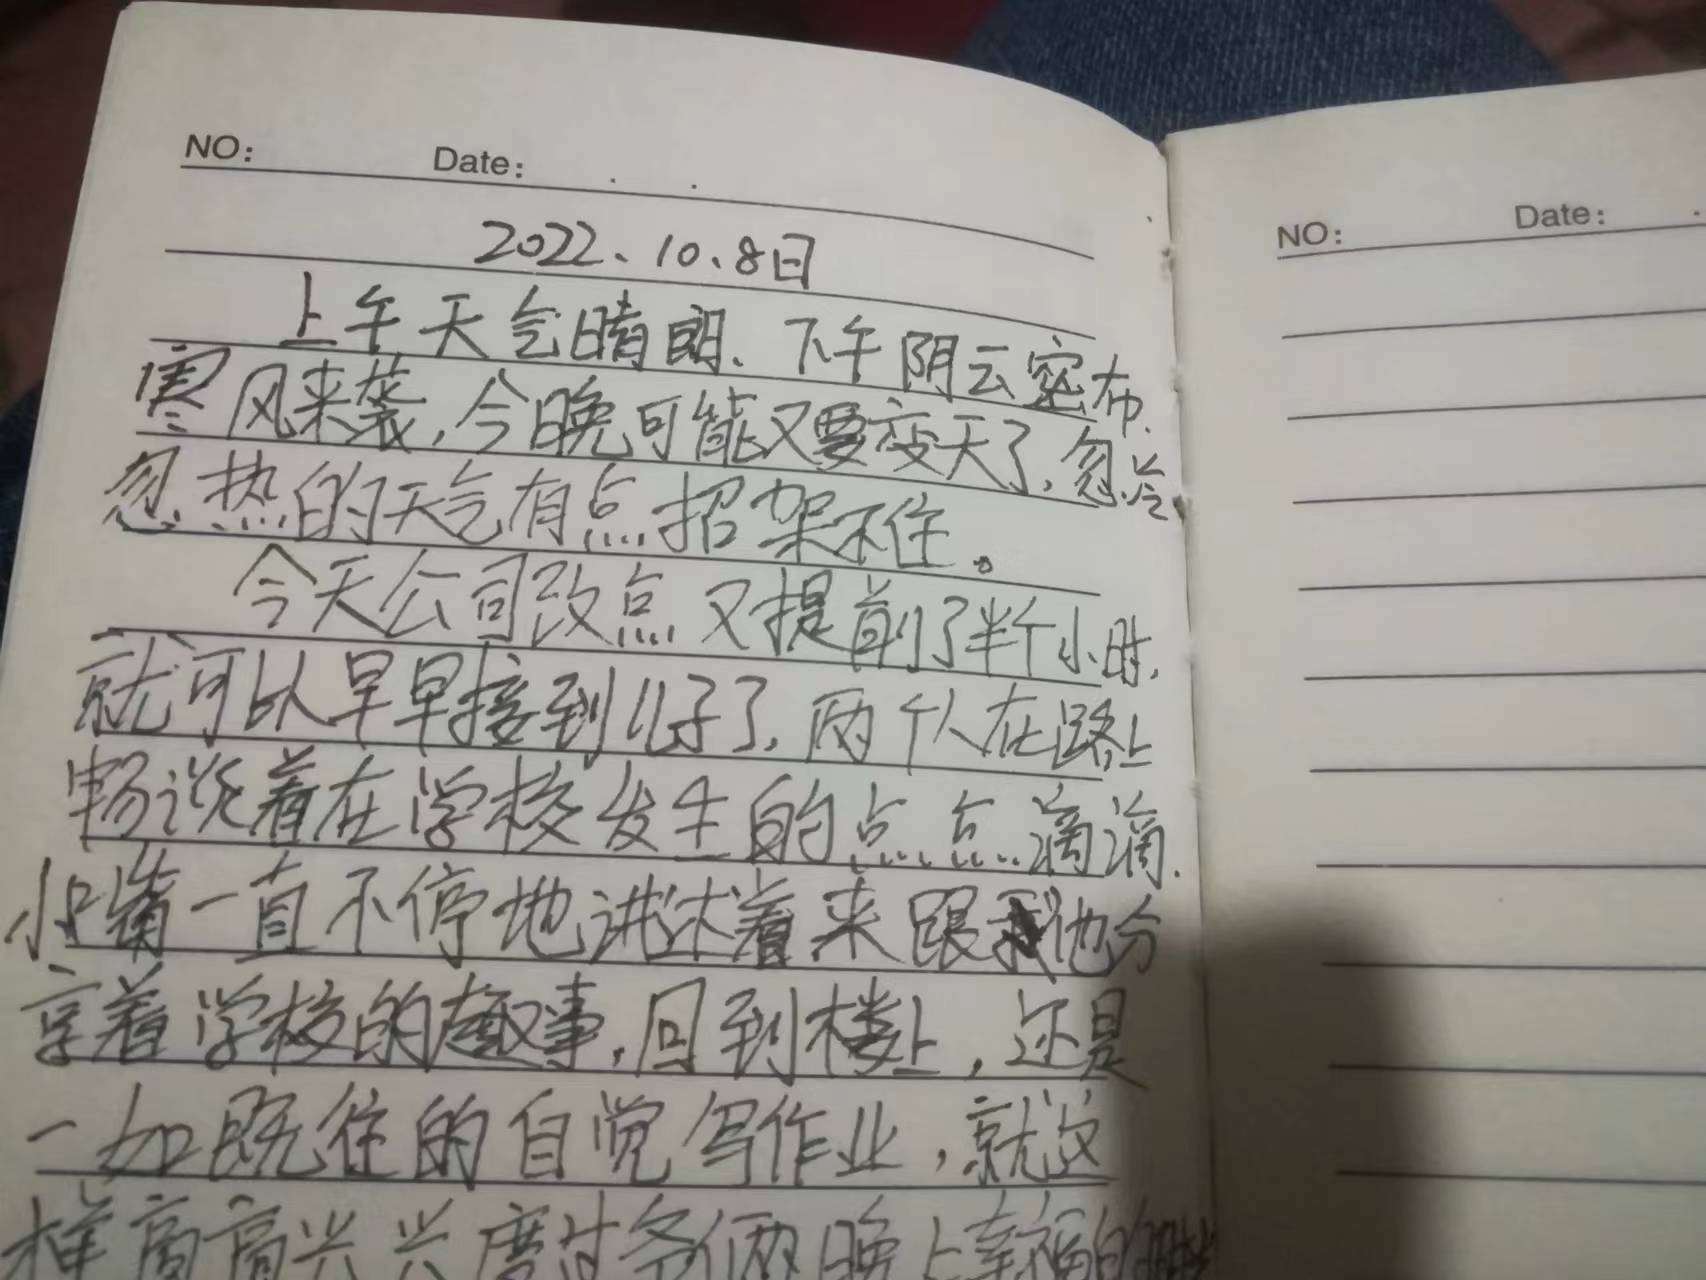 NO: Date: . .
2022、10、8日
上午天气晴朗、下午阴云密布、
寒风来袭,今晚可能又要变天了,忽冷
忽热的天气有点招架不住。
今天公司改点又提前了半个小时,
就可以早早接到儿子了,两个人在路上
畅谈着在学校发生的点点滴滴.
小嘴一直不停地讲述着来跟他分
享着学校的趣事,回到楼上,还是
一如既往的自觉写作业,就这
样高高兴兴度过爷俩晚上幸福的时
NO: Date: .